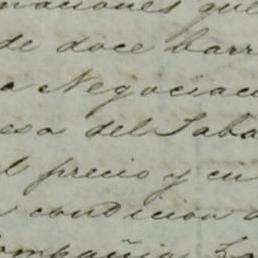 maciones que
de doce barr
a Negociaci
esa del Saba
l precio y cu
condicion d
Compañia La